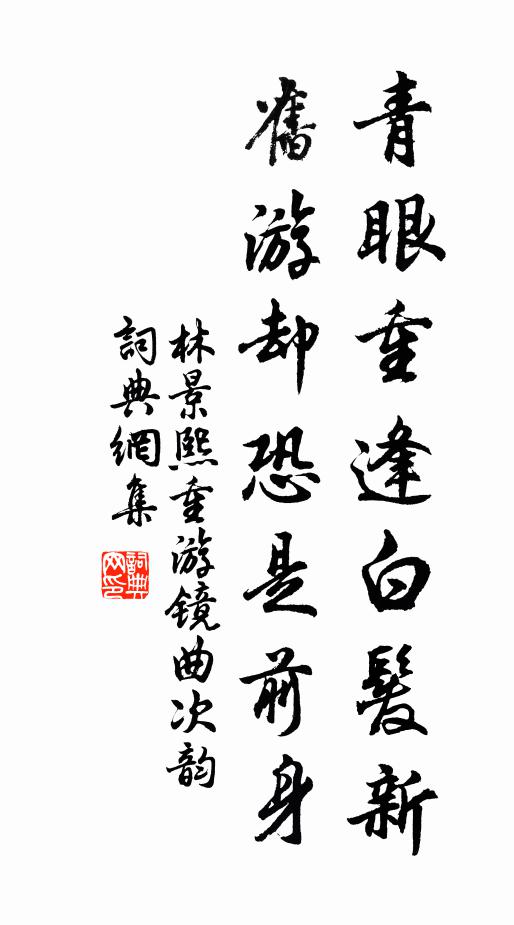 青眼重逢白髮新
舊游却恐是前身
林景熙重游镜曲次韵
詞典網集
詞典网印